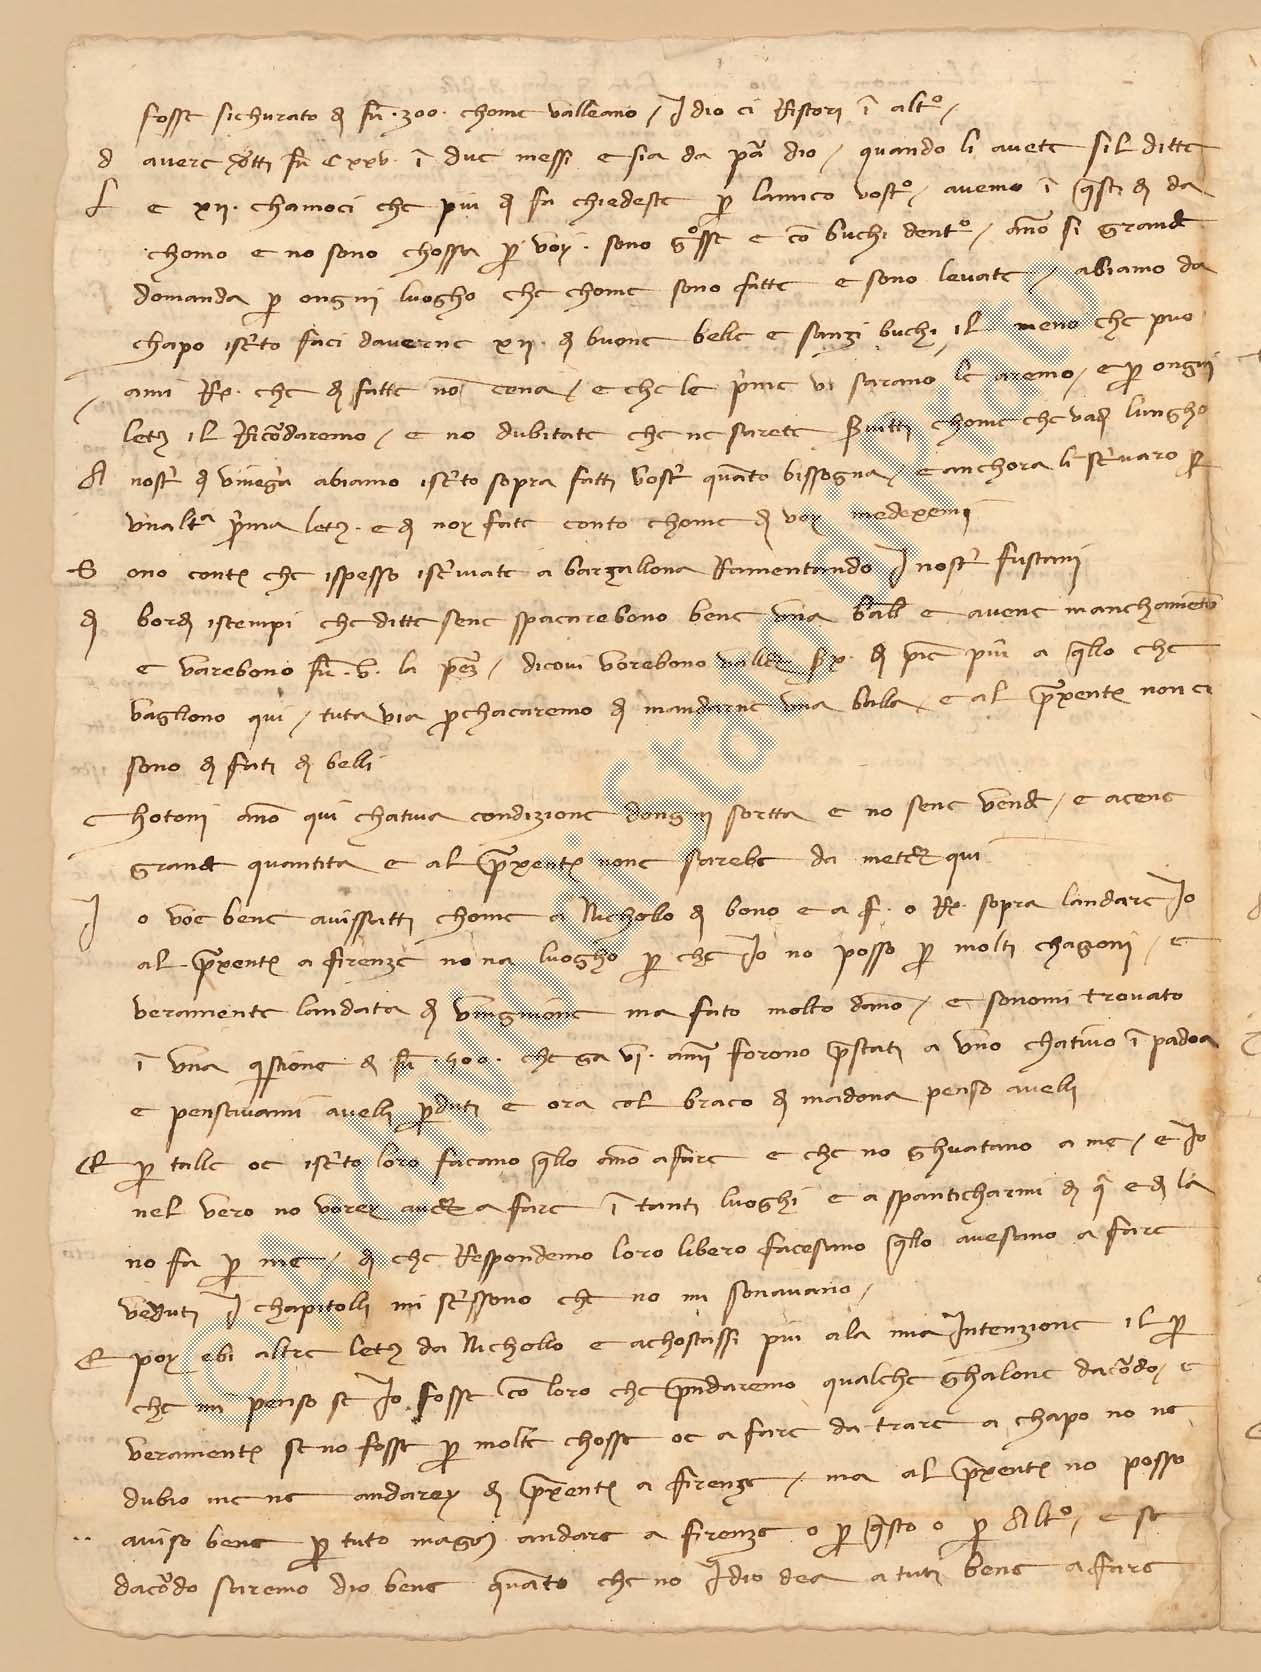 fosse sichurato di fñ .300. chome valleano / Idio ci Ristori ĩ altº /
d averc dotti fñ CXXV. ĩ due messi e sia da pã dio / quando li avete sil ditte
L e xij. chamoci che piu di fa chiedeste p lamico vostº / avemo ĩ qsti di da
chomo e no sono chossa p voy . sono gosse e cõ buchi dentº / ãno si grand
domanda p ongni luogho che chome sono fatte e sono levate / abiamo da
chapo iscrito faci daverne xij. di buone belle e sanzi buchi il meno che puo
ami R. che di fatte no cena / e che le prime vi sarano le aremo / e p ongni
letr il Ricordaremo / e no dubitate che ne sarete svitti chome che vadi lungho
A nostri di vinegia abiamo iscrito sopra fatti vostri quãto bissogna / e anchora li scrivaro p
unalta prima letr . e di noy fate conto chome di voy medexemi
S ono contẽ che ispesso iscrivate a barzallona Ramentando I nostri fustani
di bordi istempi che ditte sene spacarebono bene una balla e avene manchamẽto
e varebono fñ .v. la pez / dicovi vorebono valler s x . di pic piu a qllo che
vagliono qui / tuta via pchacaremo di mandarne una balla / e al pxente non ci
sono di fati di belli
C hotoni ãno qui chativa condizione dongni sortta e no sene vend / e acene
grand quantita e al pxente none sarebe da meter qui
I o voe bene avissatti chome a Nicholo di bono e a f. o R. sopra landare Io
al pxente a firenze no na luogho p che Io no posso p molti chagoni / e
veramente landata di vingnione ma fato molto dãno / e sonomi trovato
ĩ una qstione di fñ .500. che ga vi. anni forono pstati a uno chativo ĩ padoa
e pensavami avelli pduti e ora col braco di madona penso avelli
E p talle oe iscrito loro facano qllo ãno afare e che no ghuatano a me / e Io
nel vero no vorey aver a fare ĩ tanti luoghi e a spanticharmi di q e di la
no fa p me / di che Respondemo loro libero facesano qllo avesano a fare
veduti I chapitolli mi scrissono che no mi sonavano /
E poy ebi altre letr da Nichollo e achostassi piu ala mia Intenzione il p
che mi penso se Io fosse cõ loro che pndaremo qualche ghalone dacordo / e
veramente se no fosse p molte chosse oe a fare da trare a chapo no ne
dubio me ne andarey di pxente a firenze / ma al pxente no posso
aviso bene p tuto magio andare a firenze o p qsto o p Altº / e se
dacordo saremo dio bene quãto che no Idio dea a tuti bene a fare
© Archivio di Stato di Prato